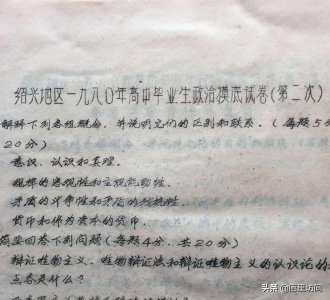 绍兴地区一九八〇年高中毕业生政治摸底试卷(第二次)
解释下列各组概念，并说明它们的区别和联系。(每题5分
20分)
意识、认识和真理。
规律的客观性和主观能动性。
矛盾的斗争性和矛盾的对抗性。
货币和作为资本的货币。
简要回答下列问题(每题4分，共20分)
辩证唯物主义、唯物辩证法和辩证唯物主义的认识论的
点各是什么？
头条 @阅瑾坊间